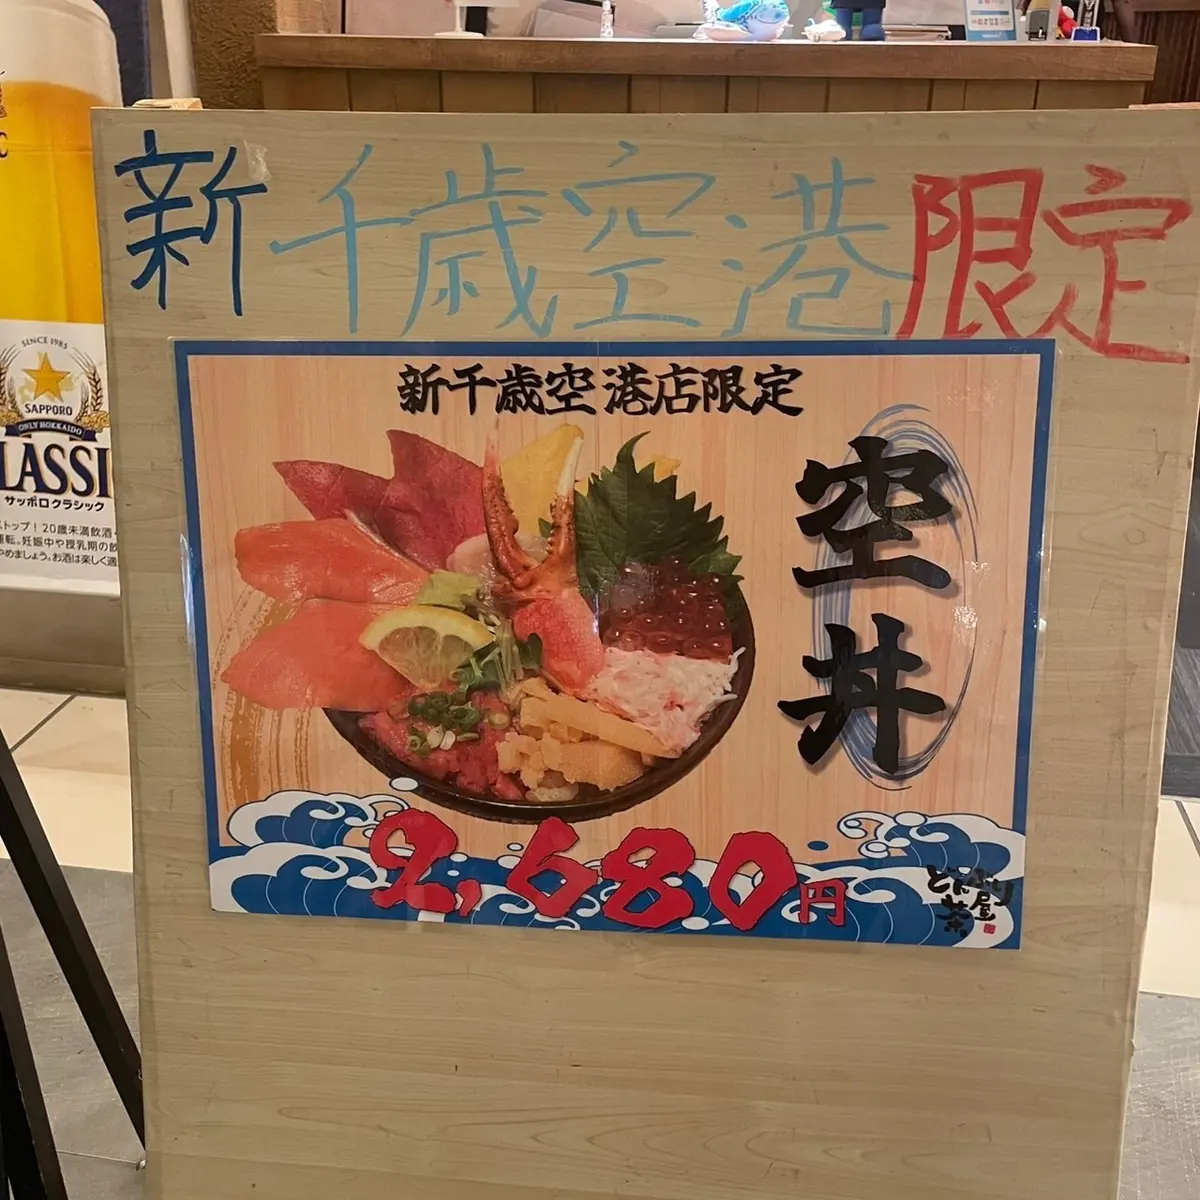 新千歳空港限定
新千歳空港店限定
空丼
2,680円
どんぶり
茶屋
SINCE 1985
SAPPORO
ONLY HOKKAIDO
LASSI
サッポロクラシック
トップ!20歳未満飲酒・
運転。妊娠中や授乳期の飲
やめましょう。お酒は楽しく適